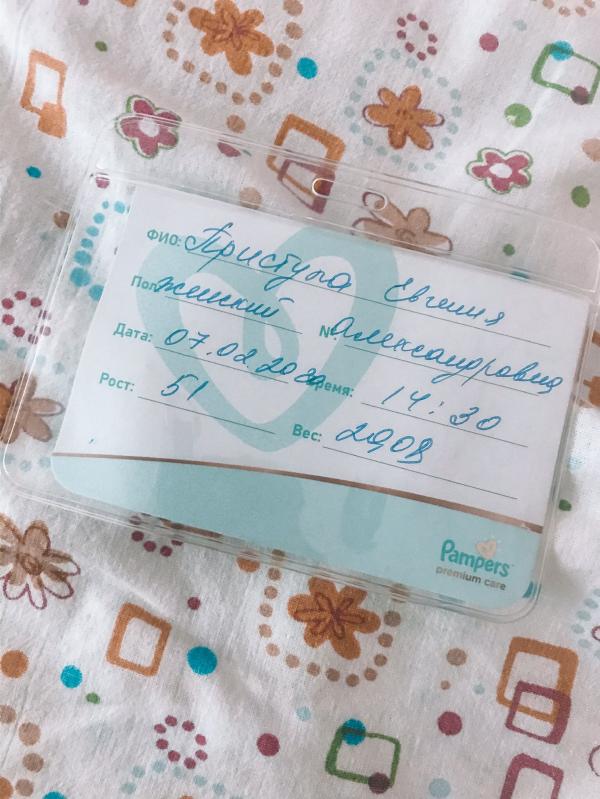 ФИО: Приступа Евгения
Пол: женский № Александровна
Дата: 07.02.2020 Время: 14:30
Рост: 51 Вес: 2908
Pampers
premium care